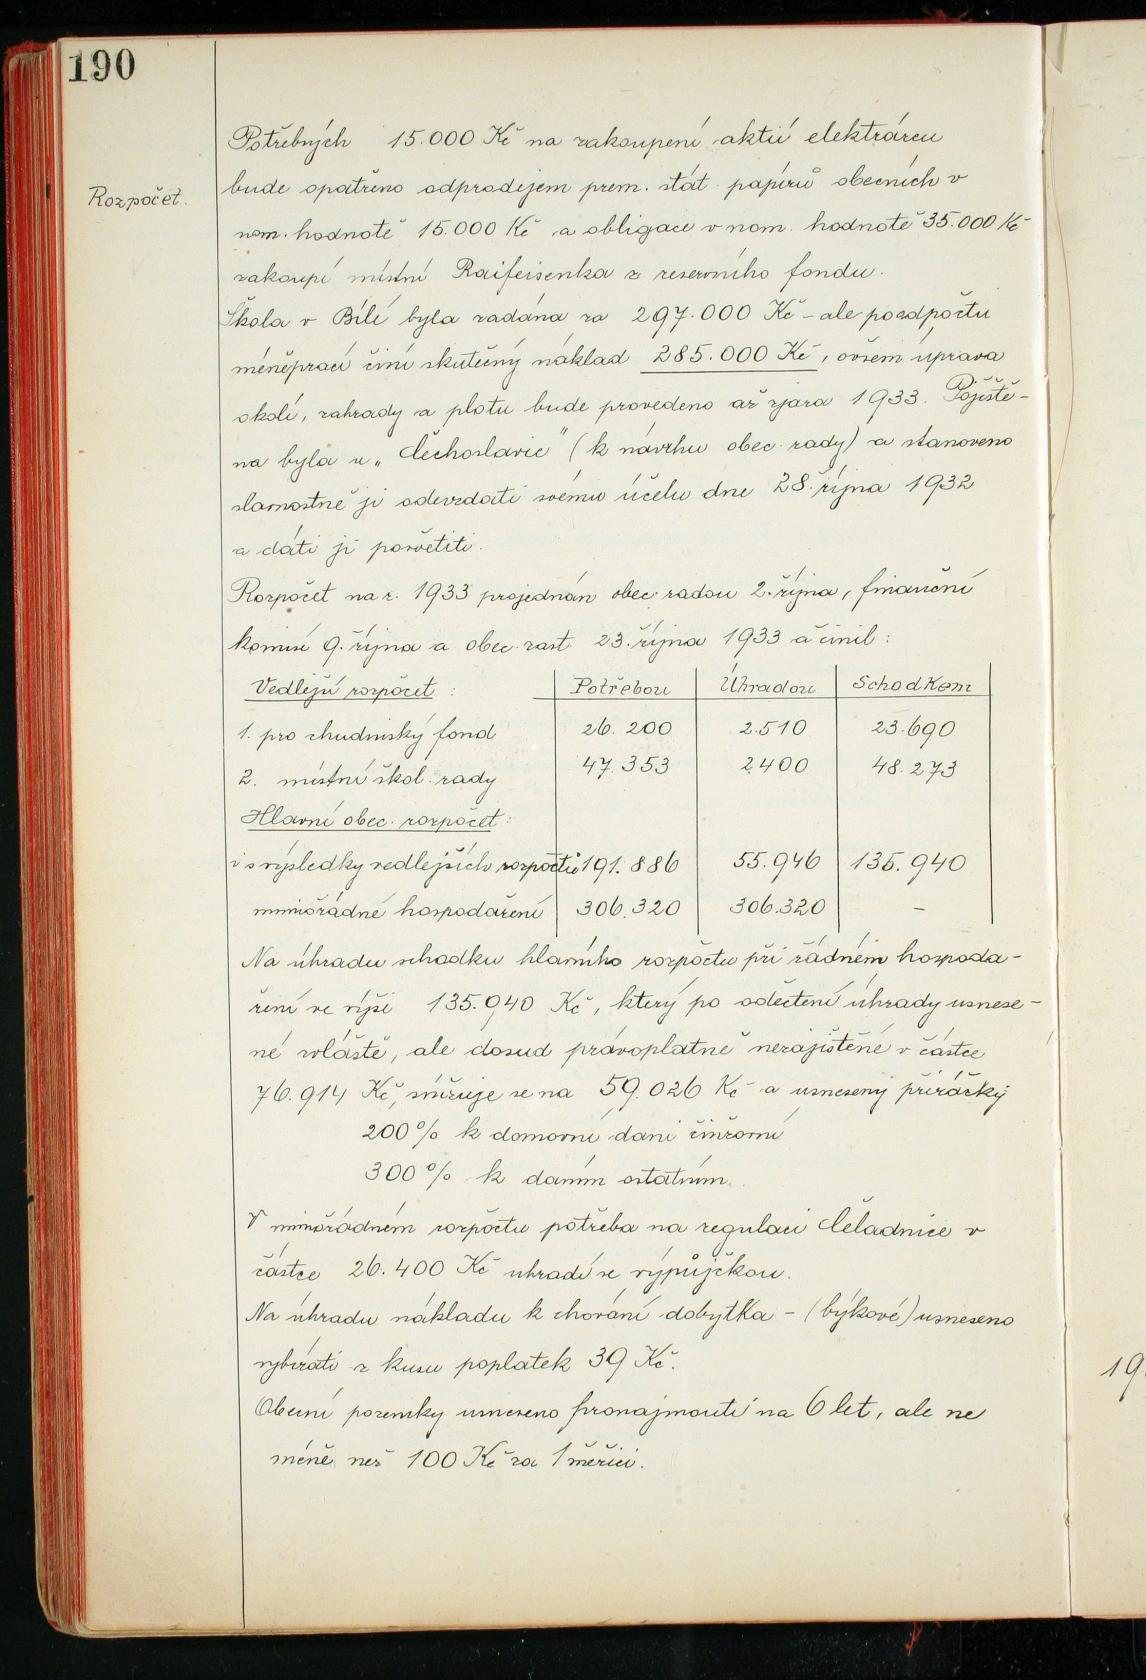 190
Rozpočet.
Potřebných 15.000 Kč na zakoupení aktií elektráren
bude opatřeno odprodejem prem. stát. papírů obecních v
nom. hodnotě 15.000 Kč a obligace v nom. hodnotě 35.000 Kč
zakoupí místní Raifeisenka z reservního fondu.
Škola v Bílé byla zadána za 297.000 Kč - ale po odpočtu
méněprací činí skutečný náklad 285.000 Kč, ovšem úprava
okolí, zahrady a plotu bude provedeno až zjara 1933. Pojiště-
na byla u „Čechoslavie" (k návrhu obec. rady) a stanoveno
slavnostně ji odevzdati svému účelu dne 28. října 1932
a dáti ji posvětiti.
Rozpočet na r. 1933 projednán obec. radou 2. října, finanční
komisí 9. října a obec. zast. 23. října 1933 a činil:
Vedlejší rozpočet: Potřebou Úhradou Schodkem
1. pro chudinský fond 26.200 2.510 23.690
2. místní škol. rady 47.353 2.400 48.273
Hlavní obec. rozpočet:
i s výsledky vedlejších rozpočtů 191.886 55.946 135.940
mimořádné hospodaření 306.320 306.320 -
Na úhradu schodku hlavního rozpočtu při řádném hospoda-
ření ve výši 135.940 Kč, který po odečtení úhrady usnese-
né zvláště, ale dosud právoplatně nezajištěné v částce
76.914 Kč, snižuje se na 59.026 Kč a usneseny přirážky
200% k domovní dani činžovní
300% k daním ostatním.
V mimořádném rozpočtu potřeba na regulaci Čeladnice v
částce 26.400 Kč uhradí se výpůjčkou.
Na úhradu nákladu k chování dobytka - (býkové) usneseno
vybírati z kusu poplatek 39 Kč.
Obecní pozemky usneseno pronajmouti na 6 let, ale ne
méně než 100 Kč za 1 měřici.
19